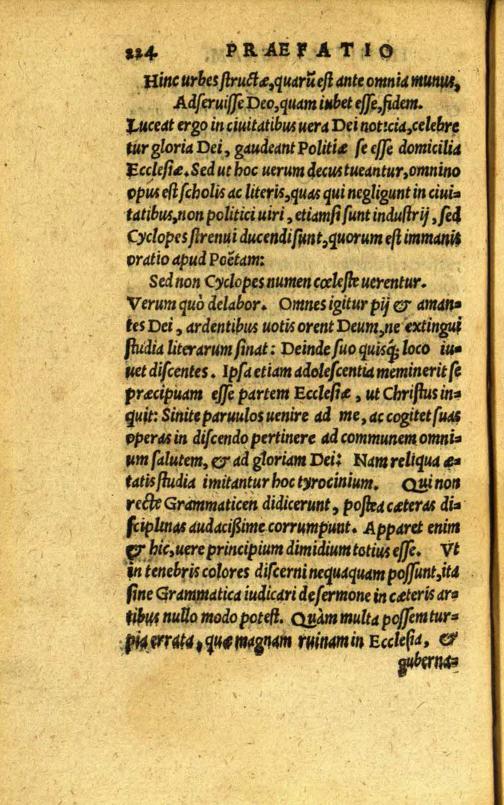 224 PRAEFATIO
Hinc urbes structæ, quarũ est ante omnia munus,
Adseruisse Deo, quam iubet esse, fidem.
Luceat ergo in ciuitatibus uera Dei noticia, celebre
tur gloria Dei, gaudeant Politiæ se esse domicilia
Ecclesiæ. Sed ut hoc uerum decus tueantur, omnino
opus est scholis ac literis, quas qui negligunt in ciui=
tatibus, non politici uiri, etiamsi sunt industrij, sed
Cyclopes strenui ducendi sunt, quorum est immanis
oratio apud Poëtam:
Sed non Cyclopes numen cœleste uerentur.
Verum quò delabor. Omnes igitur pij & aman=
tes Dei, ardentibus uotis orent Deum, ne extingui
studia literarum sinat: Deinde suo quisq; loco iu=
uet discentes. Ipsa etiam adolescentia meminerit se
præcipuam esse partem Ecclesiæ, ut Christus in=
quit: Sinite paruulos uenire ad me, ac cogitet suas
operas in discendo pertinere ad communem omni=
um salutem, & ad gloriam Dei: Nam reliqua æ=
tatis studia imitantur hoc tyrocinium. Qui non
recte Grammaticen didicerunt, postea cæteras di=
sciplinas audacißime corrumpunt. Apparet enim
& hic, uere principium dimidium totius esse. Vt
in tenebris colores discerni nequaquam possunt, ita
sine Grammatica iudicari de sermone in cæteris ar=
tibus nullo modo potest. Quàm multa possem tur=
pia errata, quæ magnam ruinam in Ecclesia, &
guberna=